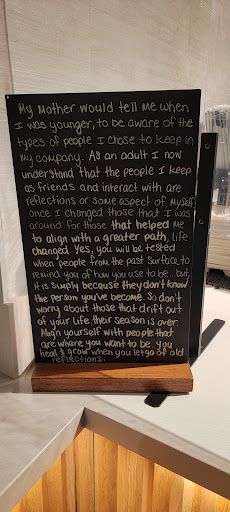 My Mother would tell me when
I was younger, to be aware of the
types of people I chose to keep in
my company. As an adult I now
understand that the people I keep
as friends and interact with are
reflections or some aspect of myself
once I changed those that I was
around for those that helped me
to align with a greater path, life
changed. Yes, you will be tested
when people from the past surface to
remind you of how you use to be...but,
it is simply because they don't know
the person you've become. So don't
worry about those that drift out
of your life, their season is over.
Align yourself with people that
are where you want to be. You
heal & grow when you let go of old
reflections.